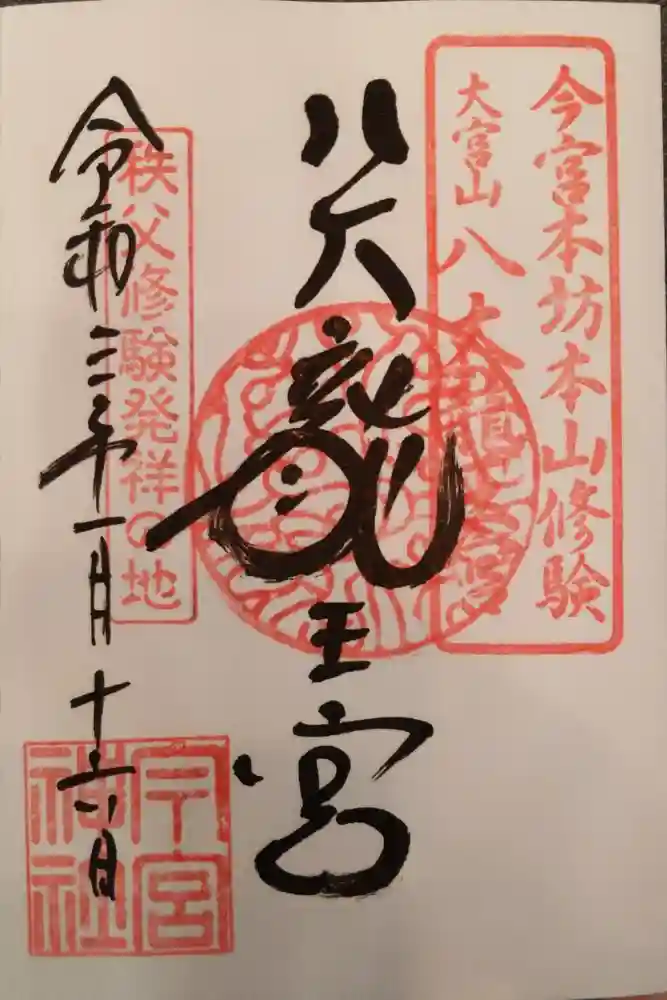 今宮本坊本山修験
大宮山八大龍王宮
八大龍王宮
秩父修験発祥の地
令和三年一月十六日
今宮
神社